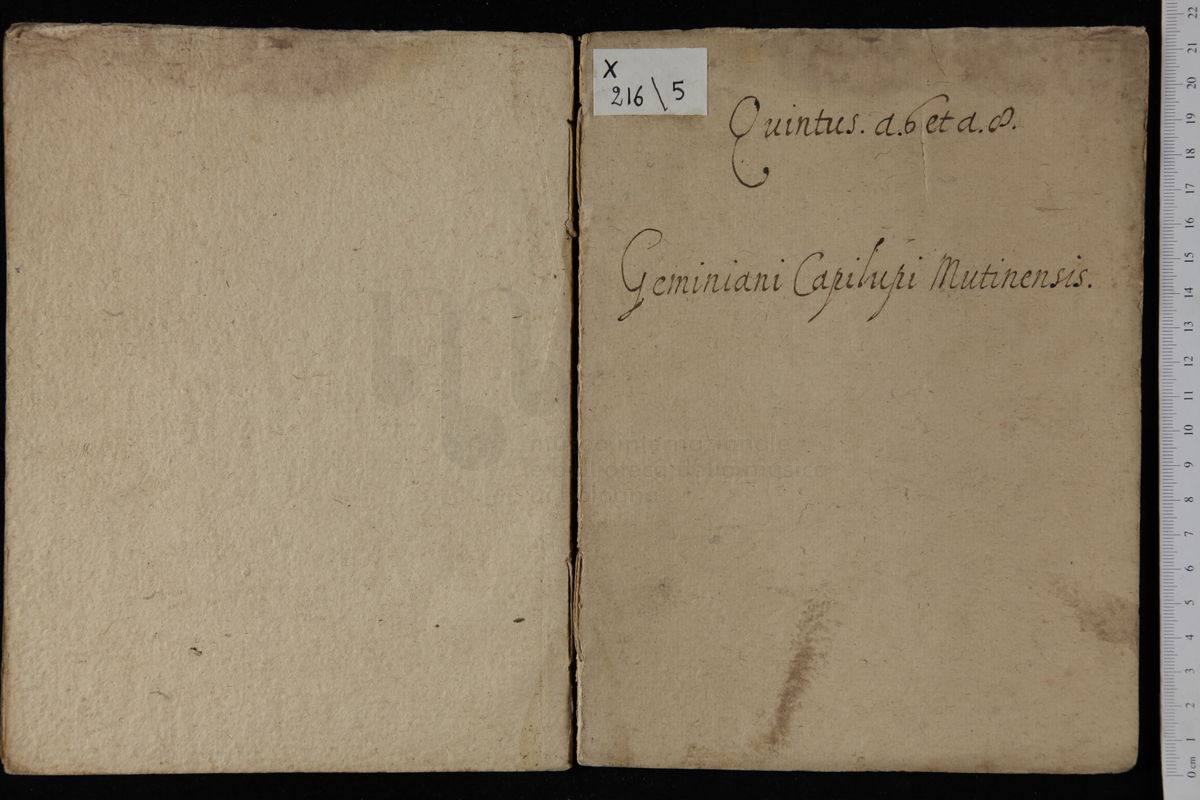 X
216 \ 5
Quintus. a.6 et a.8.
Geminiani Capilupi Mutinensis.
museo internazionale
e biblioteca della musica
di bologna
0 cm 1 2 3 4 5 6 7 8 9 10 11 12 13 14 15 16 17 18 19 20 21 22